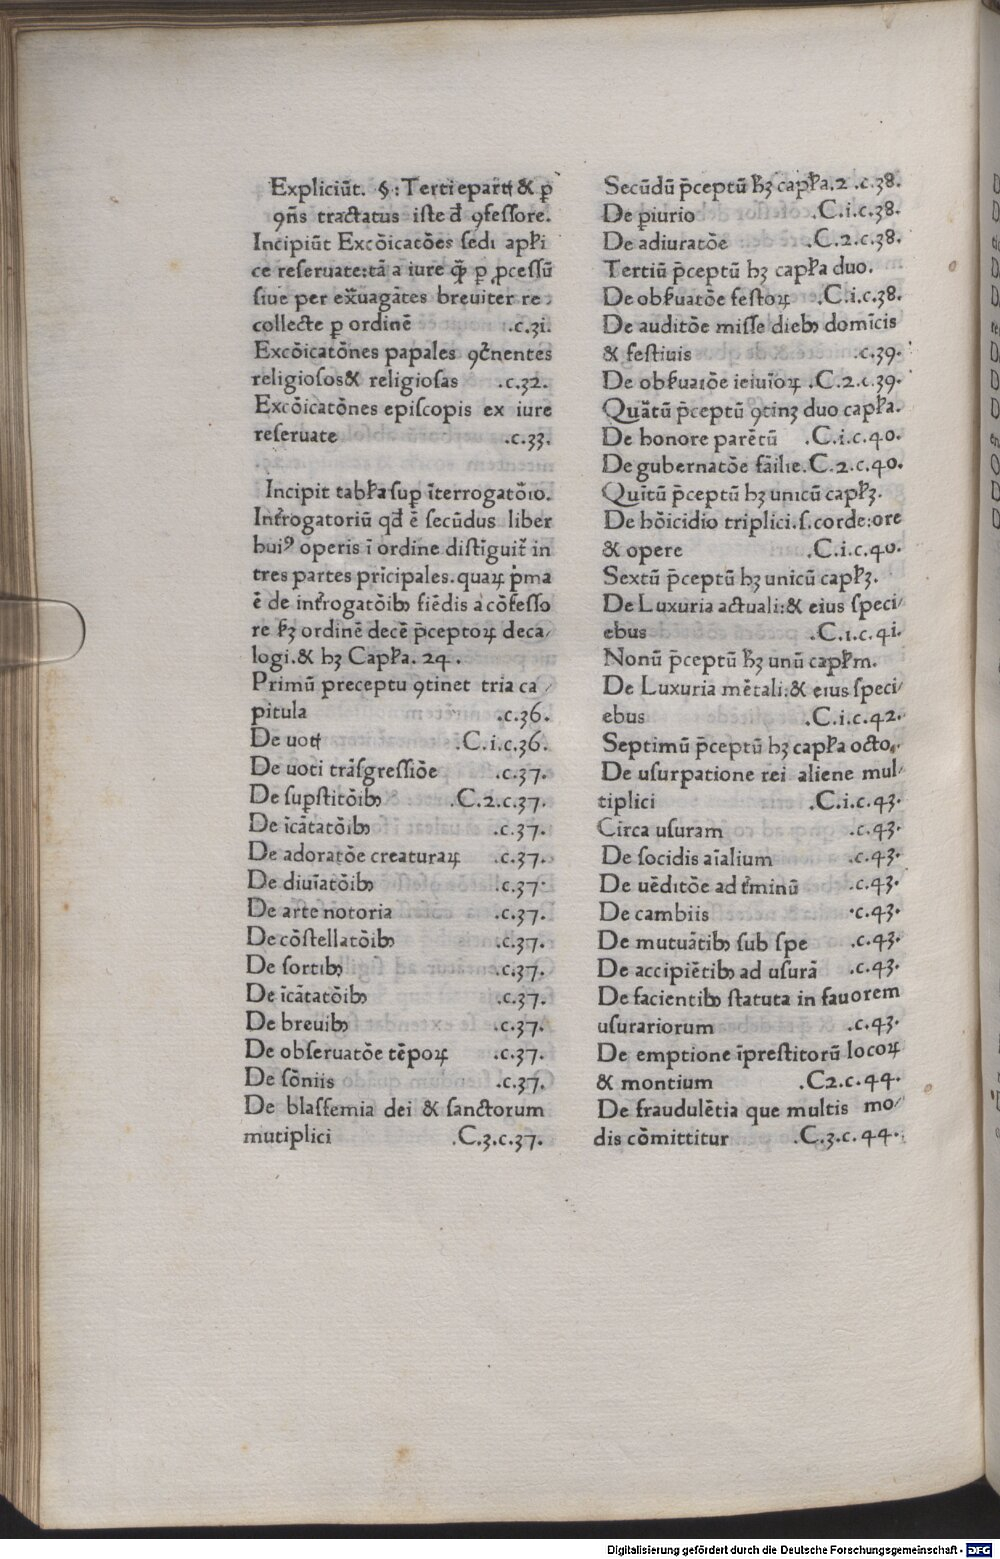 Expliciūt. §: Tertie partꝭ & ꝑ
ꝯñs tractatus iste đ ꝯfessore.
Incipiūt Excōicatōes sedi apłi
ce reseruate:tā a iure ꝙ̄ ꝑ ꝓcessū
siue per ex̄uagātes breuiter re
collecte ꝑ ordinē .c.3i.
Excōicatōnes papales ꝯt̄nentes
religiosos& religiosas .c.32.
Excōicatōnes episcopis ex iure
reseruate .c.33.
Incipit tabła suꝑ īterrogatōio.
Intr̄ogatoriū qđ ē secūdus liber
huiꝰ operis ī ordine distīguit̄ in
tres partes prīcipales.quaꝝ p̄ma
ē de intr̄ogatōibꝫ fiēdis a cōfesso
re ẜꝫ ordinē decē p̄ceptoꝝ deca/
logi.& hꝫ Capła. 24 .
Primū preceptu ꝯtinet tria ca /
pitula .c.36.
De uotꝭ .C.i.c.36.
De uoti trāsgressiōe .c.37.
De suꝑstitōibꝫ .C.2.c.37.
De īcātatōibꝫ .c.37.
De adoratōe creaturaꝝ .c.37.
De diuīatōibꝫ .c.37.
De arte notoria .c.37.
De cōstellatōibꝫ .c.37.
De sortibꝫ .c.37.
De īcātatōibꝫ .c.37.
De breuibꝫ .c.37.
De obseruatōe tēpoꝝ .c.37.
De sōniis .c.37.
De blasfemia dei & sanctorum
mutiplici .C.3.c.37.
Secūdū p̄ceptū hꝫ capła.2 .c.38.
De ꝑiurio .C.i.c.38.
De adiuratōe .C.2.c.38.
Tertiū p̄ceptū hꝫ capła duo.
De obẜuatōe festoꝝ .C.i.c.38.
De auditōe misse diebꝫ domīcis
& festiuis .c.39.
De obẜuatōe ieiuīoꝝ .C.2.c.39.
Quātū p̄ceptū ꝯtinꝫ duo capła.
De honore parētū .C.i.c.40.
De gubernatōe fāilie.C.2.c.40.
Quītū p̄ceptū hꝫ unicū capłꝫ.
De hōicidio triplici.ſ.corde:ore
& opere .C.i.c.40.
Sextū p̄ceptū hꝫ unicū capłꝫ.
De Luxuria actuali:& eius speci/
ebus .C.i.c.4i.
Nonū p̄ceptū hꝫ unū capłm.
De Luxuria mētali:& eius speci/
ebus .C.i.c.42.
Septimū p̄ceptū hꝫ capła octo.
De usurpatione rei aliene mul/
tiplici .C.i.c.43.
Circa usuram .c.43.
De socidis aīalium .c.43.
De uēditōe ad tr̄minū .c.43.
De cambiis .c.43.
De mutuātibꝫ sub spe .c.43.
De accipiētibꝫ ad usurā .c.43.
De facientibꝫ statuta in fauorem
usurariorum .c.43.
De emptione īprestitorū locoꝝ
& montium .C2.c.44.
De fraudulētia que multis mo/
dis cōmittitur .C.3.c.44.
Digitalisierung gefördert durch die Deutsche Forschungsgemeinschaft - DFG